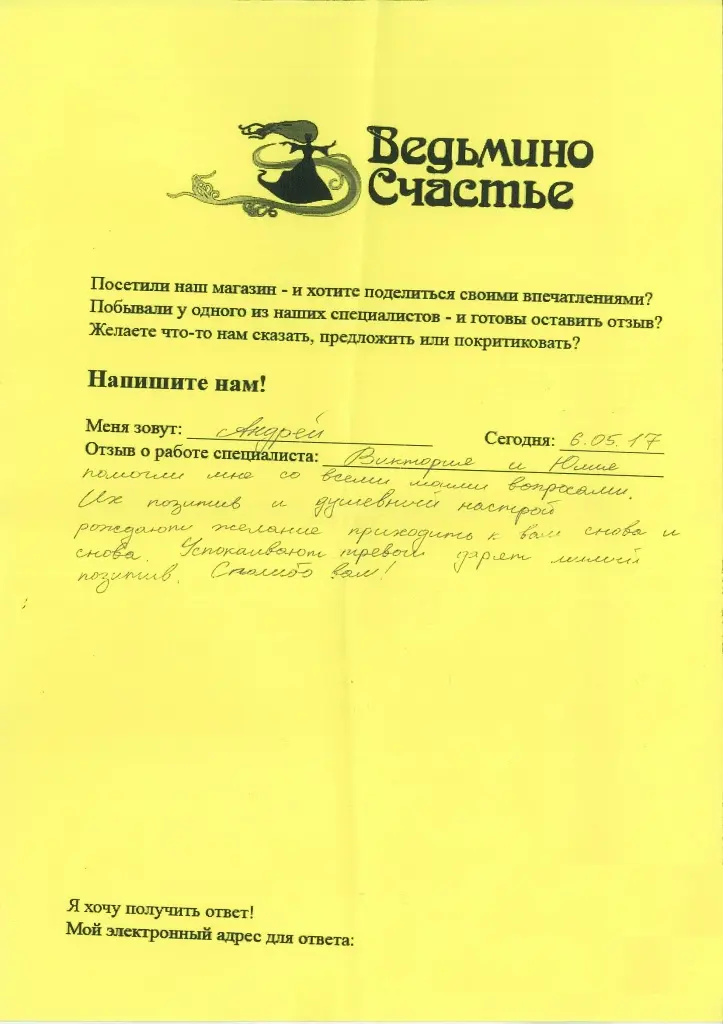 Ведьмино
Счастье
Посетили наш магазин - и хотите поделиться своими впечатлениями?
Побывали у одного из наших специалистов - и готовы оставить отзыв?
Желаете что-то нам сказать, предложить или покритиковать?
Напишите нам!
Меня зовут: Андрей Сегодня: 6.05.17
Отзыв о работе специалиста: Виктория и Юлия
помогли мне со всеми моими вопросами.
Их позитив и душевный настрой
рождают желание приходить к вам снова и
снова. Успокаивают дарят
позитив. Спасибо вам!
Я хочу получить ответ!
Мой электронный адрес для ответа: